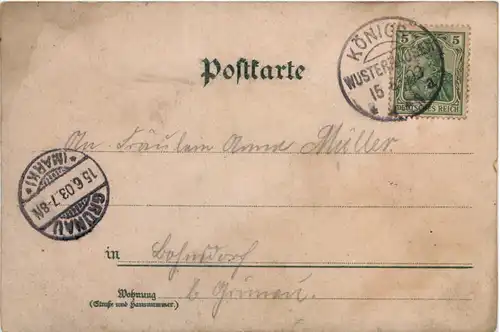 Postkarte
KÖNIGS
WUSTERHAUSEN
15
5 5
DEUTSCHES REICH
An Fräulein Anna Müller
GRÜNAU
* (MARK) *
15.6.03.7-8N
in Bohnsdorf
b Grünau
Wohnung
(Straße und Hausnummer)